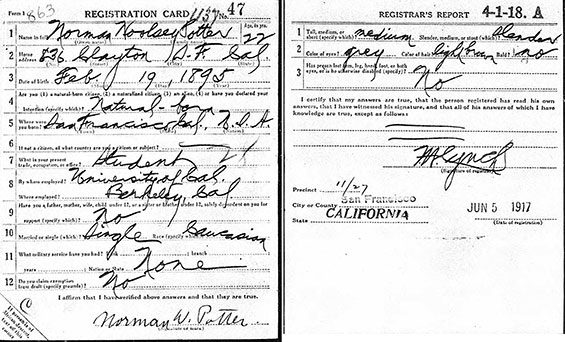 Form 1 863 REGISTRATION CARD 1137 No. 47
1 Name in full Norman Woolsey Potter Age, in yrs. 22
2 Home address 536 Clayton S.F. Cal.
3 Date of birth Feb. 19, 1895
4 Are you (1) a natural-born citizen, (2) a naturalized citizen, (3) an alien, (4) or have you declared your
intention (specify which)? Natural-born
5 Where were you born? San Francisco Cal., U.S.A.
6 If not a citizen, of what country are you a citizen or subject?
7 What is your present trade, occupation, or office? Student
8 By whom employed? University of Cal.
Where employed? Berkeley, Cal
9 Have you a father, mother, wife, child under 12, or a sister or brother under 12, solely dependent on you for
support (specify which)? No
10 Married or single (which)? Single Race (specify which)? Caucasian
11 What military service have you had? Rank branch
years Nation or State None
12 Do you claim exemption from draft (specify grounds)? No
I affirm that I have verified above answers and that they are true.
Norman W. Potter.
(Signature or mark)
REGISTRAR'S REPORT 4-1-18. A
1 Tall, medium, or short (specify which)? medium Slender, medium, or stout (which)? slender
2 Color of eyes? grey Color of hair? light brown Bald? no
3 Has person lost arm, leg, hand, foot, or both eyes, or is he otherwise disabled (specify)? No
I certify that my answers are true, that the person registered has read his own
answers, that I have witnessed his signature, and that all of his answers of which I have
knowledge are true, except as follows:
Lynch
(Signature of registrar)
Precinct 11/27
City or County San Francisco
State CALIFORNIA
JUN 5 1917
(Date of registration)